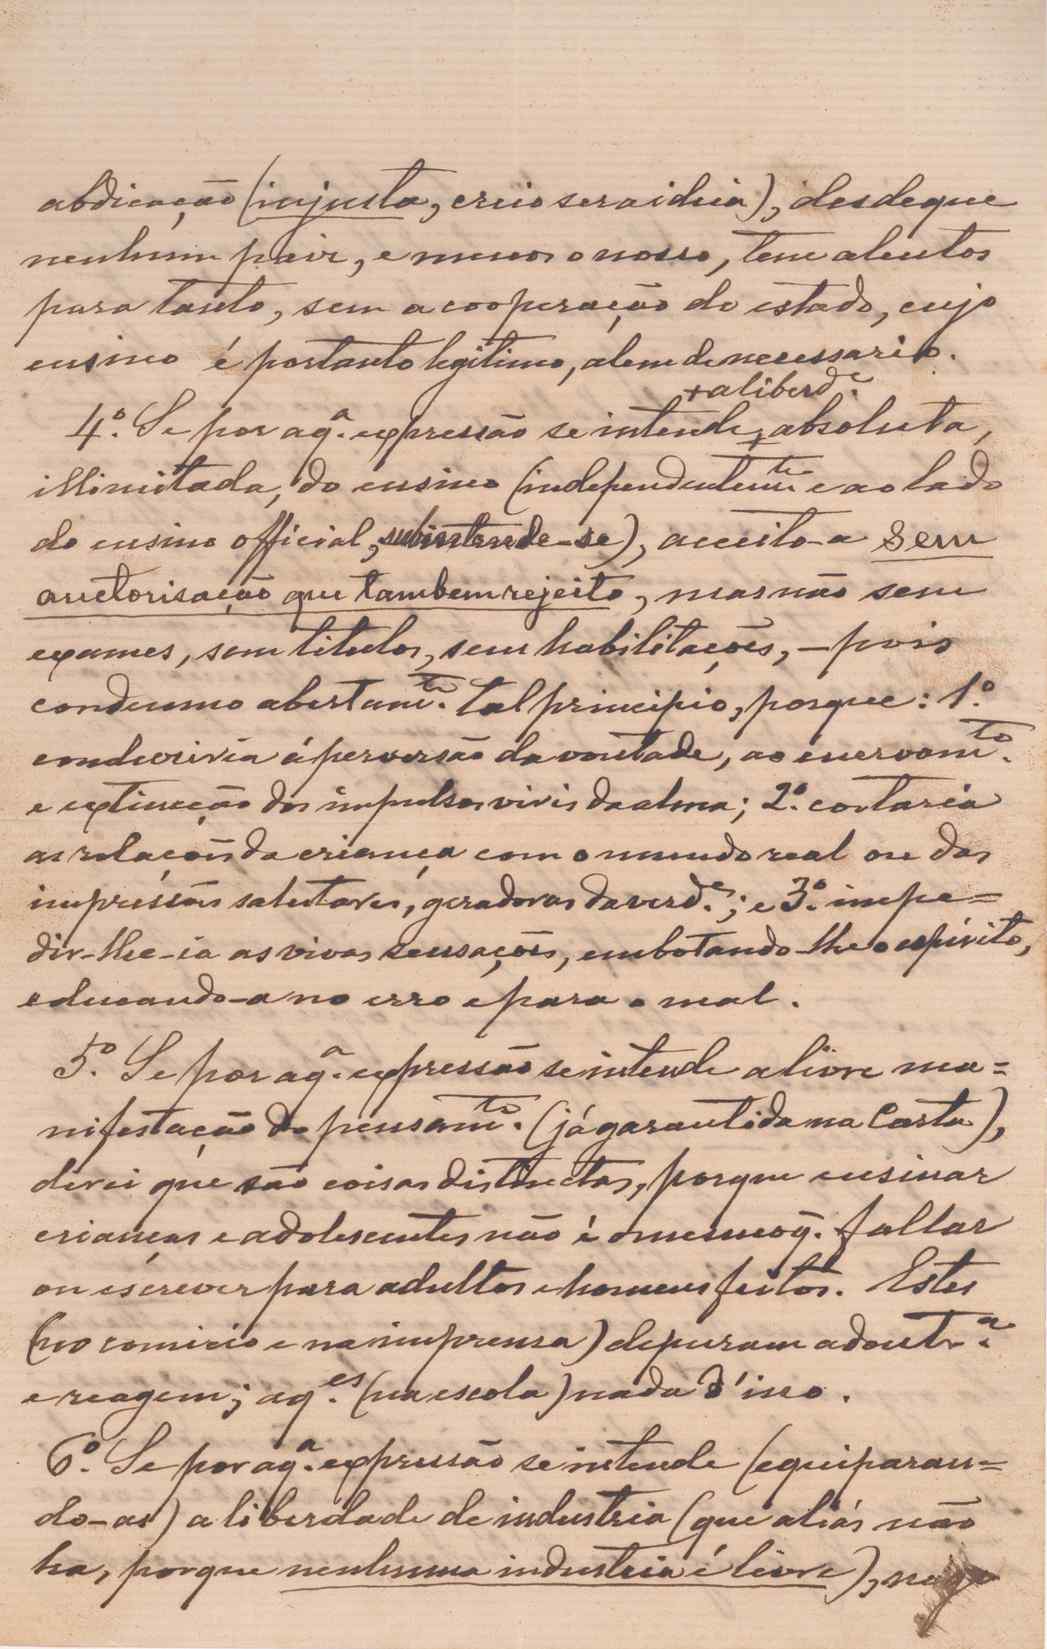 abdicação (injusta, creio ser a ideia); desde que
nenhum paiz, e menos o nosso, tem alentos
para tanto, sem a cooperação do estado, cujo
ensino é portanto legitimo, alem de necessario.
+ a liberd.e
4.º Se por aq.a expressão se intende + absoluta,
illimitada, do ensino (independentem.te e ao lado
do ensino official, subintende-se), acceito-a sem
auctorisação que tambem rejeito, mas não sem
exames, sem titulos, sem habilitações, — pois
condemno abertam.te tal principio, porque: 1.º
conduziria á perversão da vontade, ao enervam.to
e extincção dos impulsos vivis da alma; 2.º cortaria
as relações da criança com o mundo real ou das
impressões salutares, geradoras da verd.e; e 3.º impe=
dir-lhe-ia as vivas sensações, embotando-lhe o espirito,
educando-a no erro e para o mal.
5.º Se por aq.a expressão se intende a livre ma=
nifestação do pensam.to (já garantida na Carta),
direi que são coisas distinctas, porque ensinar
crianças e adolescentes não é o mesmo q. fallar
ou escrever para adultos e homens feitos. Estes
(no comicio e na imprensa) depuram a doutr.a
e reagem; aq.es (na escola) nada d'isso.
6.º Se por aq.a expressão se intende (equiparan=
do-as) a liberdade de industria (que aliás não
ha, porque nenhuma industria é livre), nego